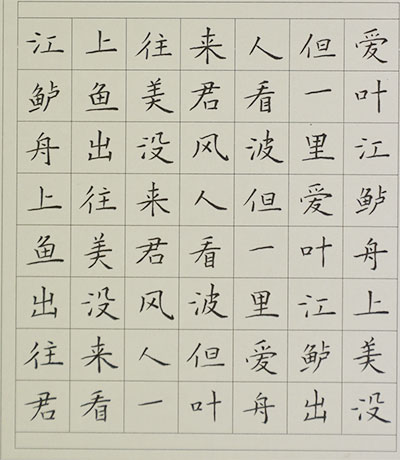 江上往来人但爱
鲈鱼美君看一叶
舟出没风波里江
上往来人但爱鲈
鱼美君看一叶舟
出没风波里江上
往来人但爱鲈美
君看一叶舟出没